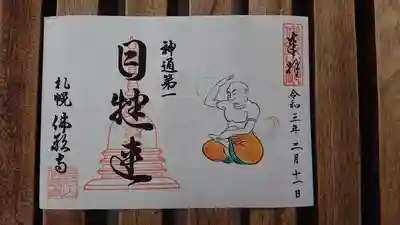 奉拝
令和三年二月十一日
神通第一
目犍連
札幌
佛願寺